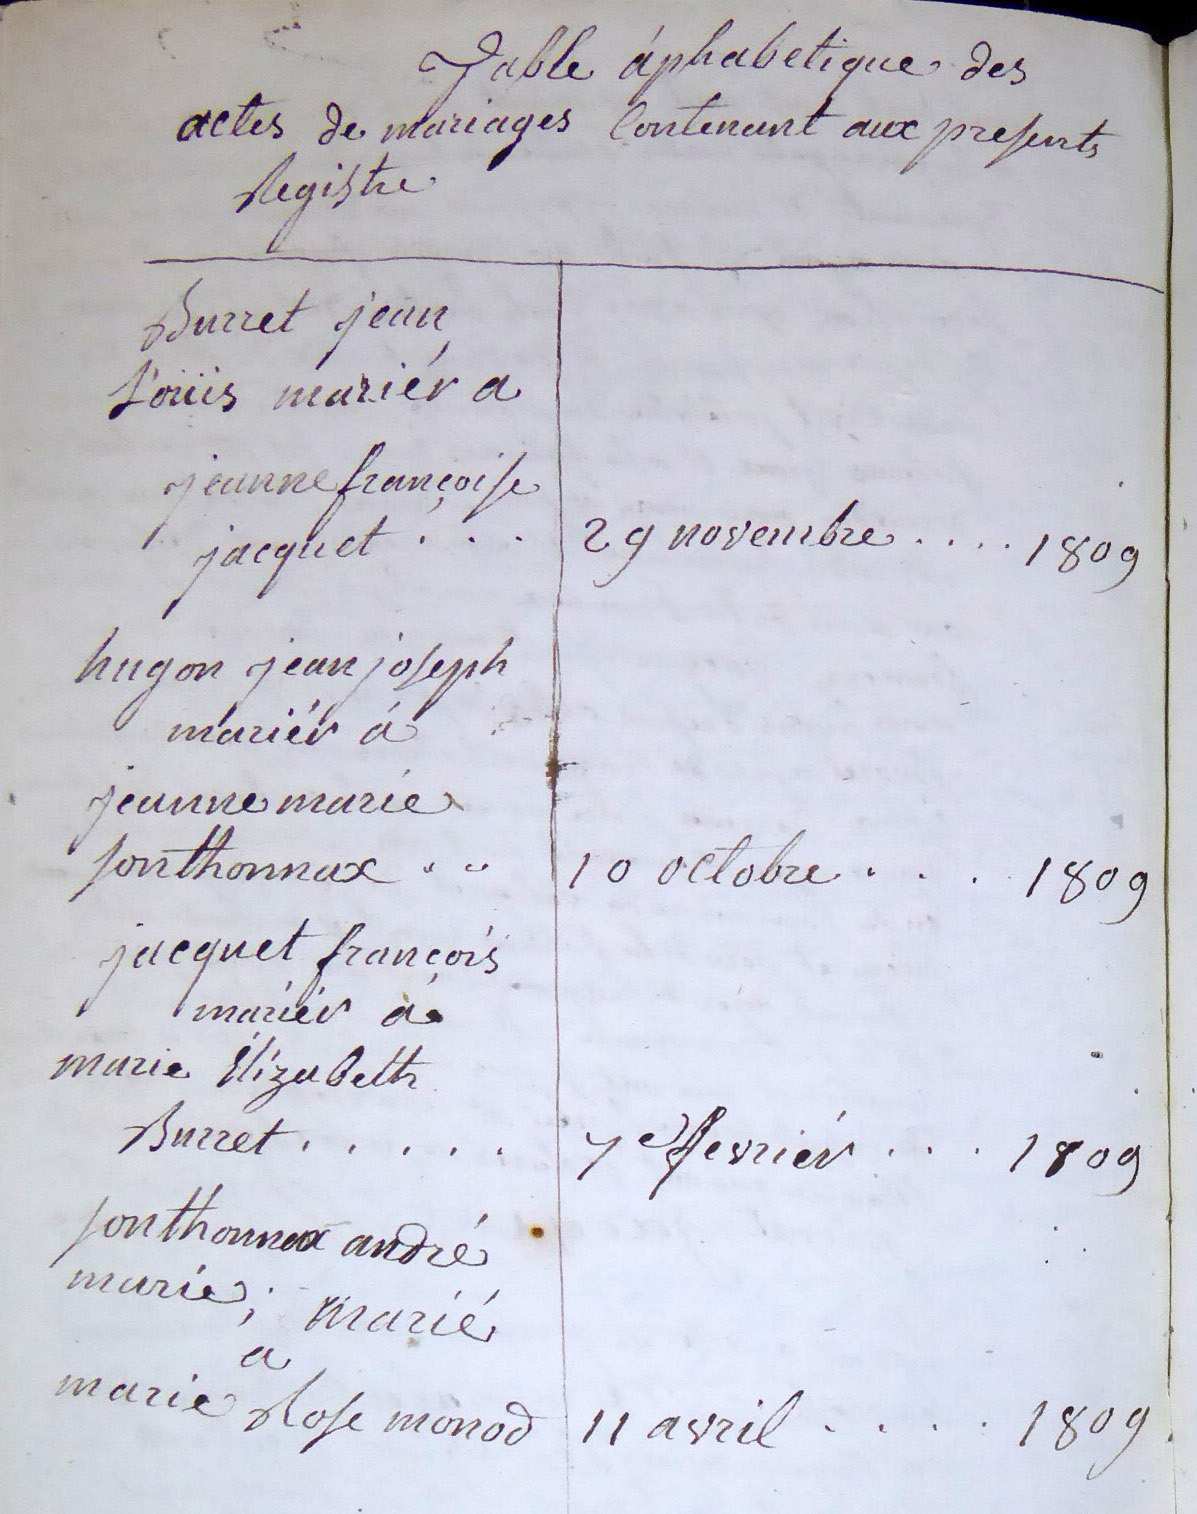 Table áphabetique des
actes de mariages Contenant aux presents
Registre
Burret jean
Loüis mariér a
jeanne françoise
jacquet . . . 29 novembre . . . . 1809
hugon jean joseph
mariér á
jeanne marie
jonthonnax . . 10 octobre . . . 1809
jacquet françois
mariér á
marie Élizabeth
Burret . . . . . 7e fevriér . . . 1809
jonthonnax andré
marie ; marié
a
marie Rose monod 11 avril . . . . 1809